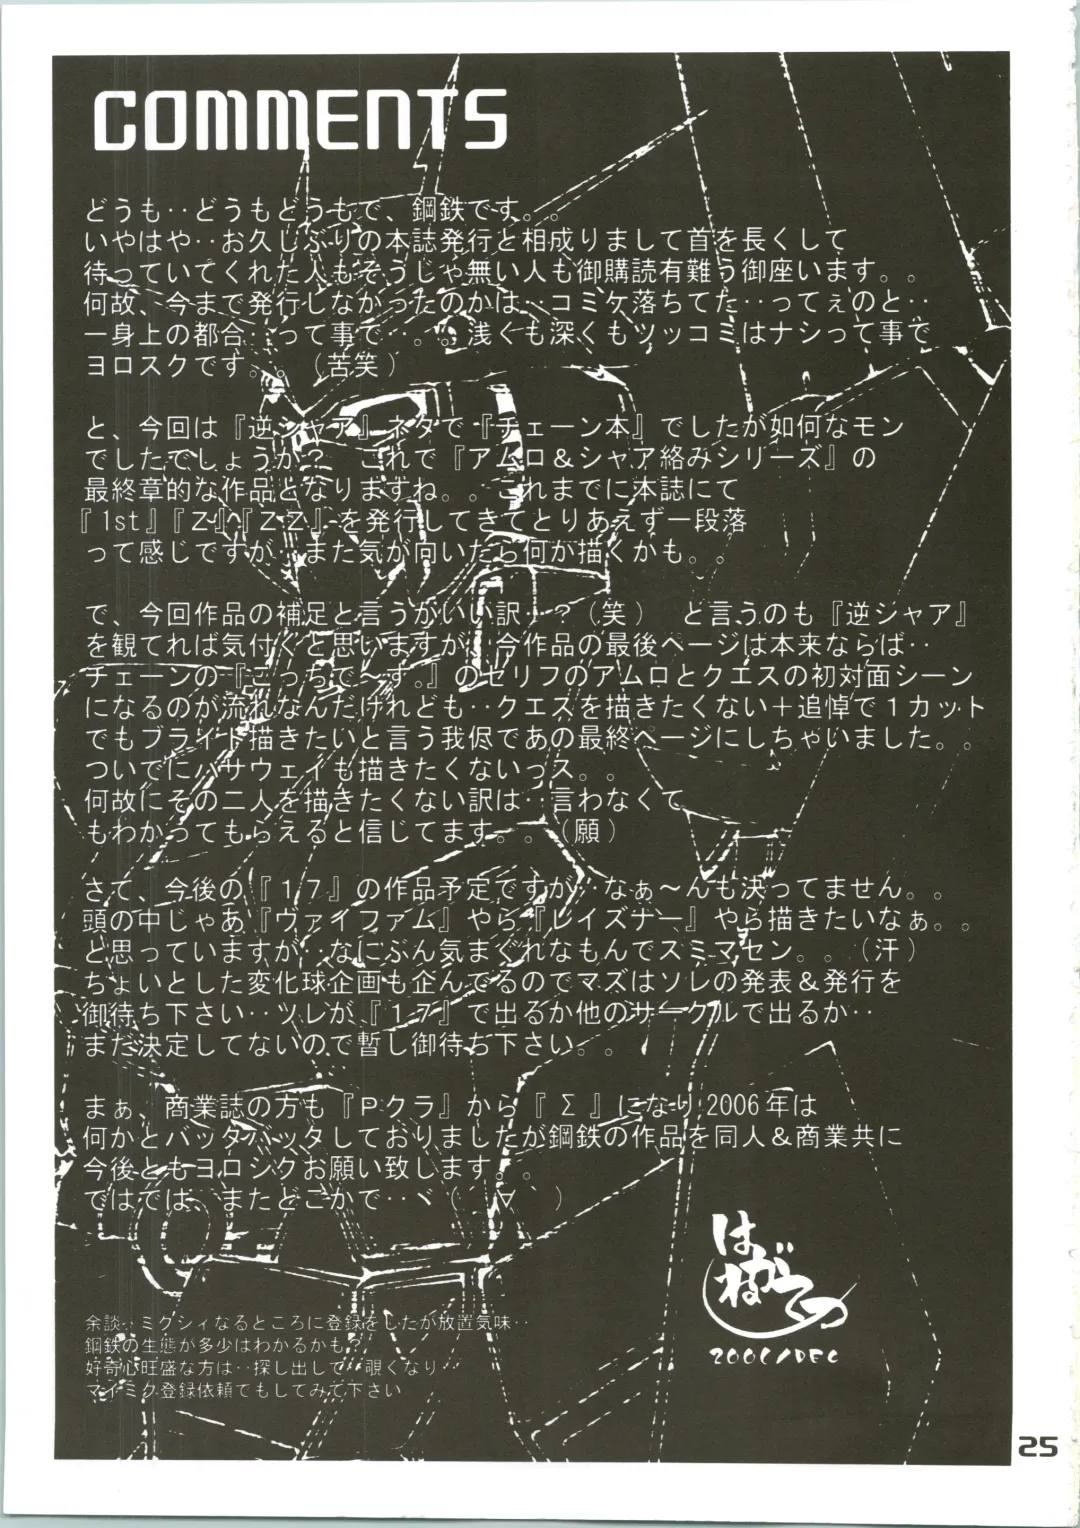 COMMENTS
どうも‥どうもどうもで、鋼鉄です。。
いやはや‥お久しぶりの本誌発行と相成りまして首を長くして
待っていてくれた人もそうじゃ無い人も御購読有難う御座います。。
何故、今まで発行しなかったのかは‥コミケ落ちてた‥ってぇのと‥
一身上の都合‥って事で‥。。浅くも深くもツッコミはナシって事で
ヨロスクです。。(苦笑)
と、今回は『逆シャア』ネタで『チェーン本』でしたが如何なモン
でしたでしょうか?　これで『アムロ＆シャア絡みシリーズ』の
最終章的な作品となりますね。。これまでに本誌にて
『1st』『Z』『ZZ』を発行してきてとりあえず一段落
って感じですが‥また気が向いたら何か描くかも。。
で、今回作品の補足と言うかいい訳‥?(笑)　と言うのも『逆シャア』
を観てれば気付くと思いますが‥今作品の最後ページは本来ならば‥
チェーンの『こっちで〜す。』のセリフのアムロとクエスの初対面シーン
になるのが流れなんだけれども‥クエスを描きたくない＋追悼で1カット
でもブライト描きたいと言う我侭であの最終ページにしちゃいました。。
ついでにハサウェイも描きたくないっス。。
何故にその二人を描きたくない訳は‥言わなくて
もわかってもらえると信じてます。。(願)
さて、今後の『17』の作品予定ですが‥なぁ〜んも決ってません。。
頭の中じゃあ『ヴァイファム』やら『レイズナー』やら描きたいなぁ。。
と思っていますが‥なにぶん気まぐれなもんでスミマセン。。(汗)
ちょいとした変化球企画も企んでるのでマズはソレの発表＆発行を
御待ち下さい‥ソレが『17』で出るか他のサークルで出るか‥
まだ決定してないので暫し御待ち下さい。。
まぁ、商業誌の方も『Pクラ』から『Σ』になり2006年は
何かとバッタバッタしておりましたが鋼鉄の作品を同人＆商業共に
今後ともヨロシクお願い致します。。
ではでは、またどこかで‥ヾ(´∀｀)
はがねてつ
2006/DEC
余談‥ミクシィなるところに登録をしたが放置気味‥
鋼鉄の生態が多少はわかるかも?
好奇心旺盛な方は‥探し出して‥覗くなり‥
マイミク登録依頼でもしてみて下さい
25